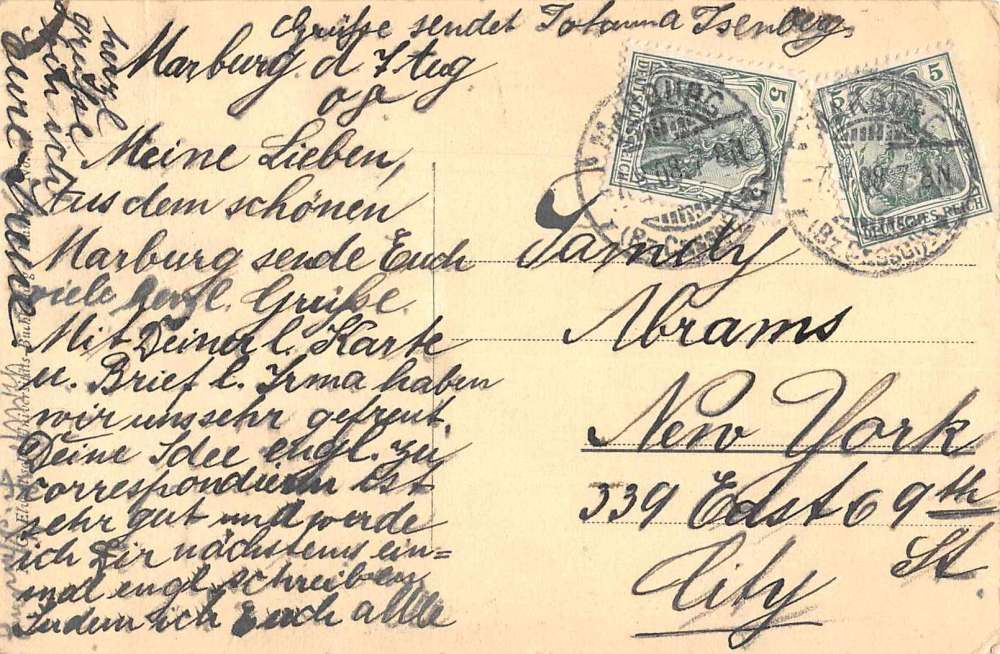 Grüße sendet Johanna Isenberg.
Marburg. d 7 Aug
08
Meine Lieben,
Aus dem schönen
Marburg sende Euch
viele herzl. Grüße.
Mit Deiner l. Karte
u. Brief l. Irma haben
wir uns sehr gefreut.
Deine Idee engl. zu
correspondieren ist
sehr gut und werde
ich Dir nächstens ein=
mal engl. schreiben
Indem ich Euch allle
herzl
grüßt
Eure
Family
Abrams
New York
339 East 69th
St
City
5
DEUTSCHES REICH
5
DEUTSCHES REICH
MARBURG
MARBURG